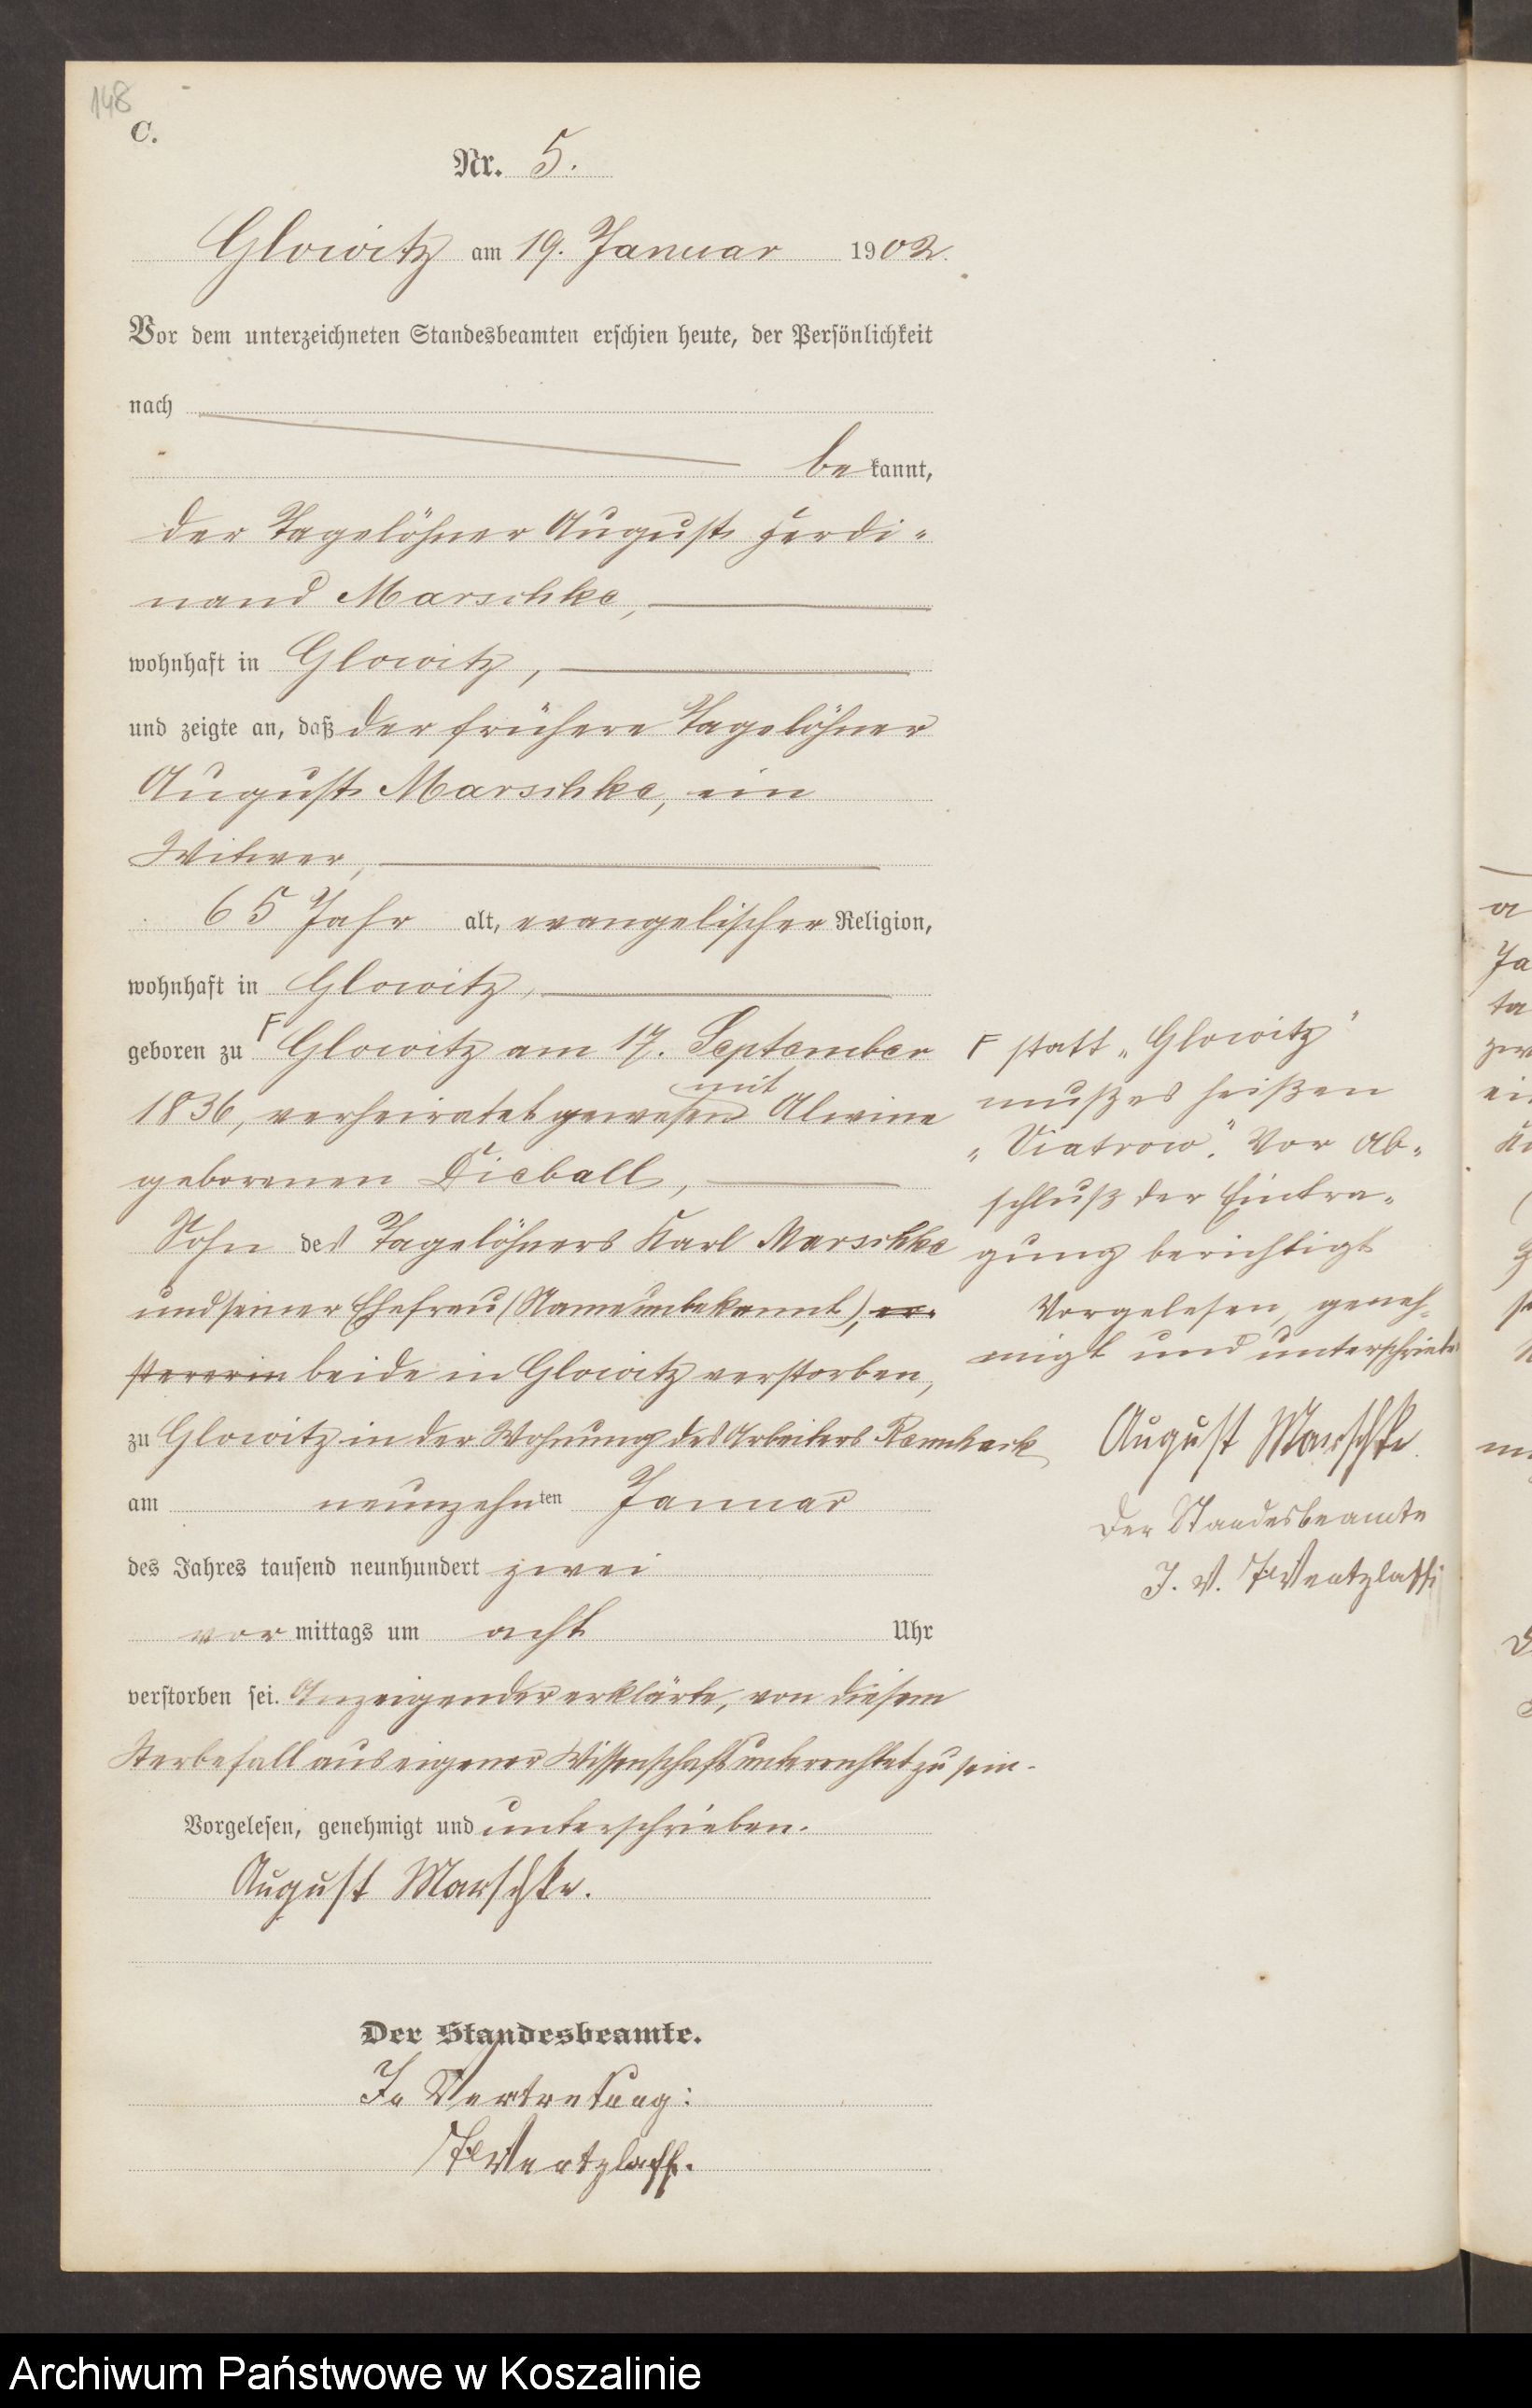 148
C.
Nr. 5.
Glowitz am 19. Januar 1902.
Vor dem unterzeichneten Standesbeamten erschien heute, der Persönlichkeit
nach
be kannt,
der Tagelöhner August Ferdi-
nand Marschke,
wohnhaft in Glowitz,
und zeigte an, daß der frühere Tagelöhner
August Marschke, ein
Witwer,
65 Jahr alt, evangelischer Religion,
wohnhaft in Glowitz,
geboren zu F Glowitz am 17. September
mit
1836, verheiratet gewesen Alwine
geborenen Dieball,
Sohn des Tagelöhners Karl Marschke
und seiner Ehefrau (Name unbekannt), er-
sterer in beide in Glowitz verstorben,
zu Glowitz in der Wohnung des Arbeiters
am neunzehnten Januar
des Jahres tausend neunhundert zwei
vor mittags um acht Uhr
verstorben sei. Anzeigender erklärte, von diesem
Sterbefall aus eigener Wissenschaft unterrichtet zu sein.
Vorgelesen, genehmigt und unterschrieben.
August Marschke.
Der Standesbeamte.
In Vertretung:
Wentzlaff.
F statt „Glowitz"
muß es heißen
„Viatrow". Vor Ab-
schluß der Eintra-
gung berichtigt
Vorgelesen, geneh-
migt und unterschrieben
August Marschke.
Der Standesbeamte
I. V. Wentzlaff
a
Ja
ta
zw
ei
Archiwum Państwowe w Koszalinie